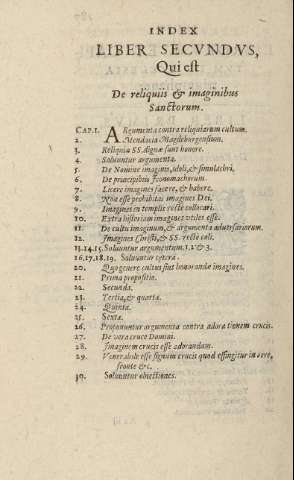 INDEX
LIBER SECVNDVS,
Qui est
De reliquiis & imaginibus
Sanctorum.
CAP. I. ARgumenta contra reliquiarum cultum.
2. Mendacia Magdeburgensium.
3. Reliquiæ SS. dignæ sunt honore.
4. Soluuntur argumenta.
5. De Nomine imaginis, idoli, & simulachri.
6. De præcipibus Iconomachrum.
7. Licere imagines facere, & habere.
8. Non esse prohibitas imagines Dei.
9. Imagines in templis recte collocari.
10. Extra historiam imagines vtiles esse.
11. De cultu imaginum, & argumenta aduersariorum.
12. Imagines Christi, & SS. recte coli.
13. 14. 15. Soluuntur argumentum. 1. 2 & 3.
16. 17. 18. 19. Soluuntur cetera.
20. Quo genere cultus sint honorandæ imagines.
21. Prima propositio.
22. Secunda.
23. Tertia, & quarta.
24. Quinta.
25. Sexta.
26. Proponuntur argumenta contra adorationem crucis.
27. De vera cruce Domini.
28. Imaginem crucis esse adorandam.
29. Venerabile esse signum crucis quod effingitur in aere,
fronte &c.
30. Soluuntur obiectiones.